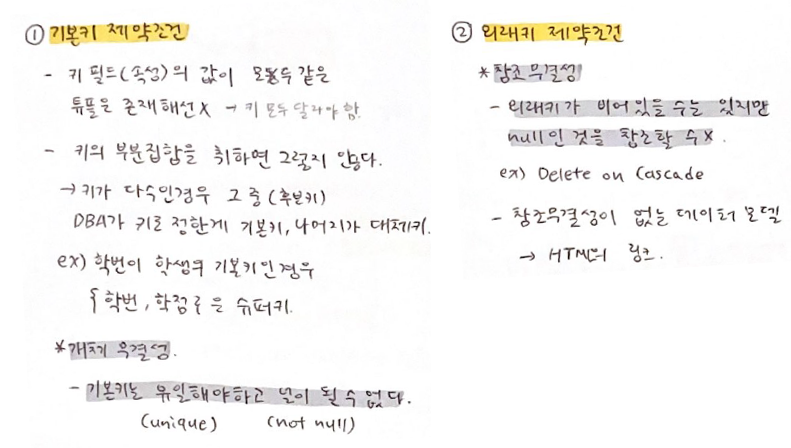 ① 기본키 제약조건
- 키 필드(속성)의 값이 모두 같은
튜플은 존재해선 X → 키 모두 달라야 함.
- 키의 부분집합을 취하면 그렇지 않다.
→ 키가 다수인경우 그 중 (후보키)
DBA가 키로 정한게 기본키, 나머지가 대체키.
ex) 학번이 학생의 기본키인경우
{학번, 학점}은 슈퍼키.
*개체 무결성.
- 기본키는 유일해야하고 널이 될 수 없다.
(unique) (not null)
② 외래키 제약조건
*참조무결성
- 외래키가 비어있을수는 있지만
null인 것을 참조할 수 X.
ex) Delete on Cascade
- 참조무결성이 없는 데이터 모델
→ HTML의 링크.